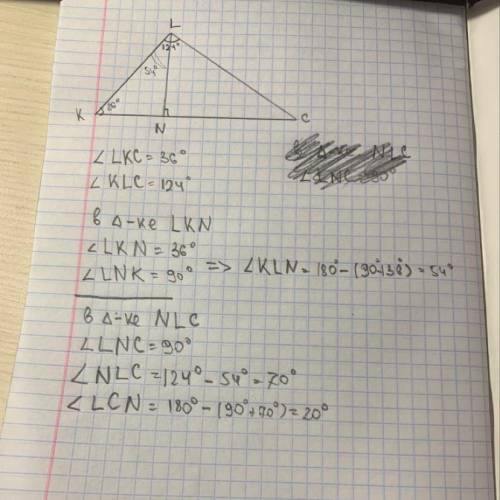 L
124°
54°
K 36° C
N
∠LKC = 36°
∠KLC = 124°
в Δ-ке LKN
∠LKN = 36°
∠LNK = 90° => ∠KLN = 180° - (90°+36°) = 54°
в Δ-ке NLC
∠LNC = 90°
∠NLC = 124° - 54° = 70°
∠LCN = 180° - (90°+70°) = 20°